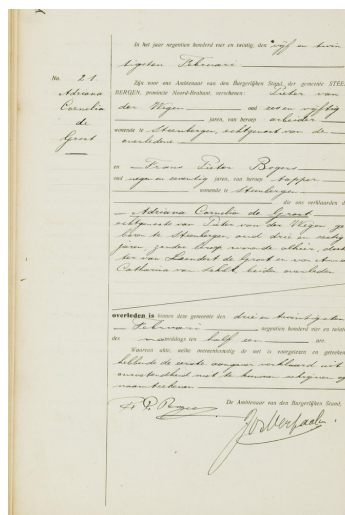 No. 21
Adriana
Cornelia
de
Groot
In het jaar negentien honderd vier en twintig, den vijf en twin
tigsten Februari
Zijn voor ons Ambtenaar van den Burgerlijken Stand, der gemeente STEEN
BERGEN, provincie Noord-Brabant, verschenen: Pieter van
der Wegen oud zes en vijftig
jaren, van beroep arbeider
wonende te Steenbergen, echtgenoot van de
overledene
en Frans Pieter Bogers
oud negen en zeventig jaren, van beroep tapper
wonende te Steenbergen
die ons verklaarden d
Adriana Cornelia de Groot
echtgenoote van Pieter van der Wegen ge
boren te Steenbergen, oud drie en zestig
jaren zonder beroep wonende alhier, doch
ter van Leendert de Groot en van Anna
Catharina van beide overleden
overleden is binnen deze gemeente den drie en twintigsten
Februari negentien honderd vier en twintig
des middags ten half een ure.
Waarvan akte, welke overeenkomstig de wet is voorgelezen en geteeken
hebbende de eerste comparant verklaard uit
onervarendheid niet te kunnen schrijven of
naamteekenen
De Ambtenaar van den Burgerlijken Stand,
F. P. Bogers
Jos Verpaalen